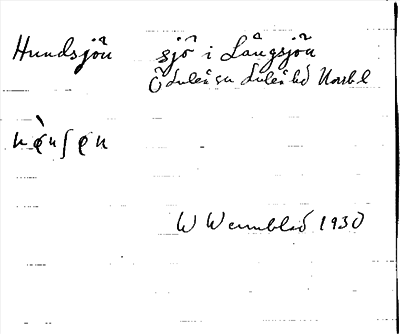 Hundsjön sjö i Långsjön
Ö Luleå sn Luleå hd Norrb l
W Wennblad 1930